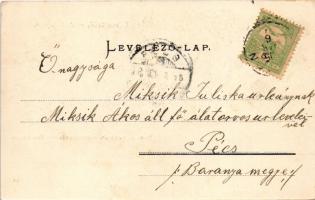 LEVELEZŐ-LAP.
Őnagysága
Miksik Juliska urleánynak
Miksik Akos áll fő álatorvos ur
vel
Pécs
Baranya megye